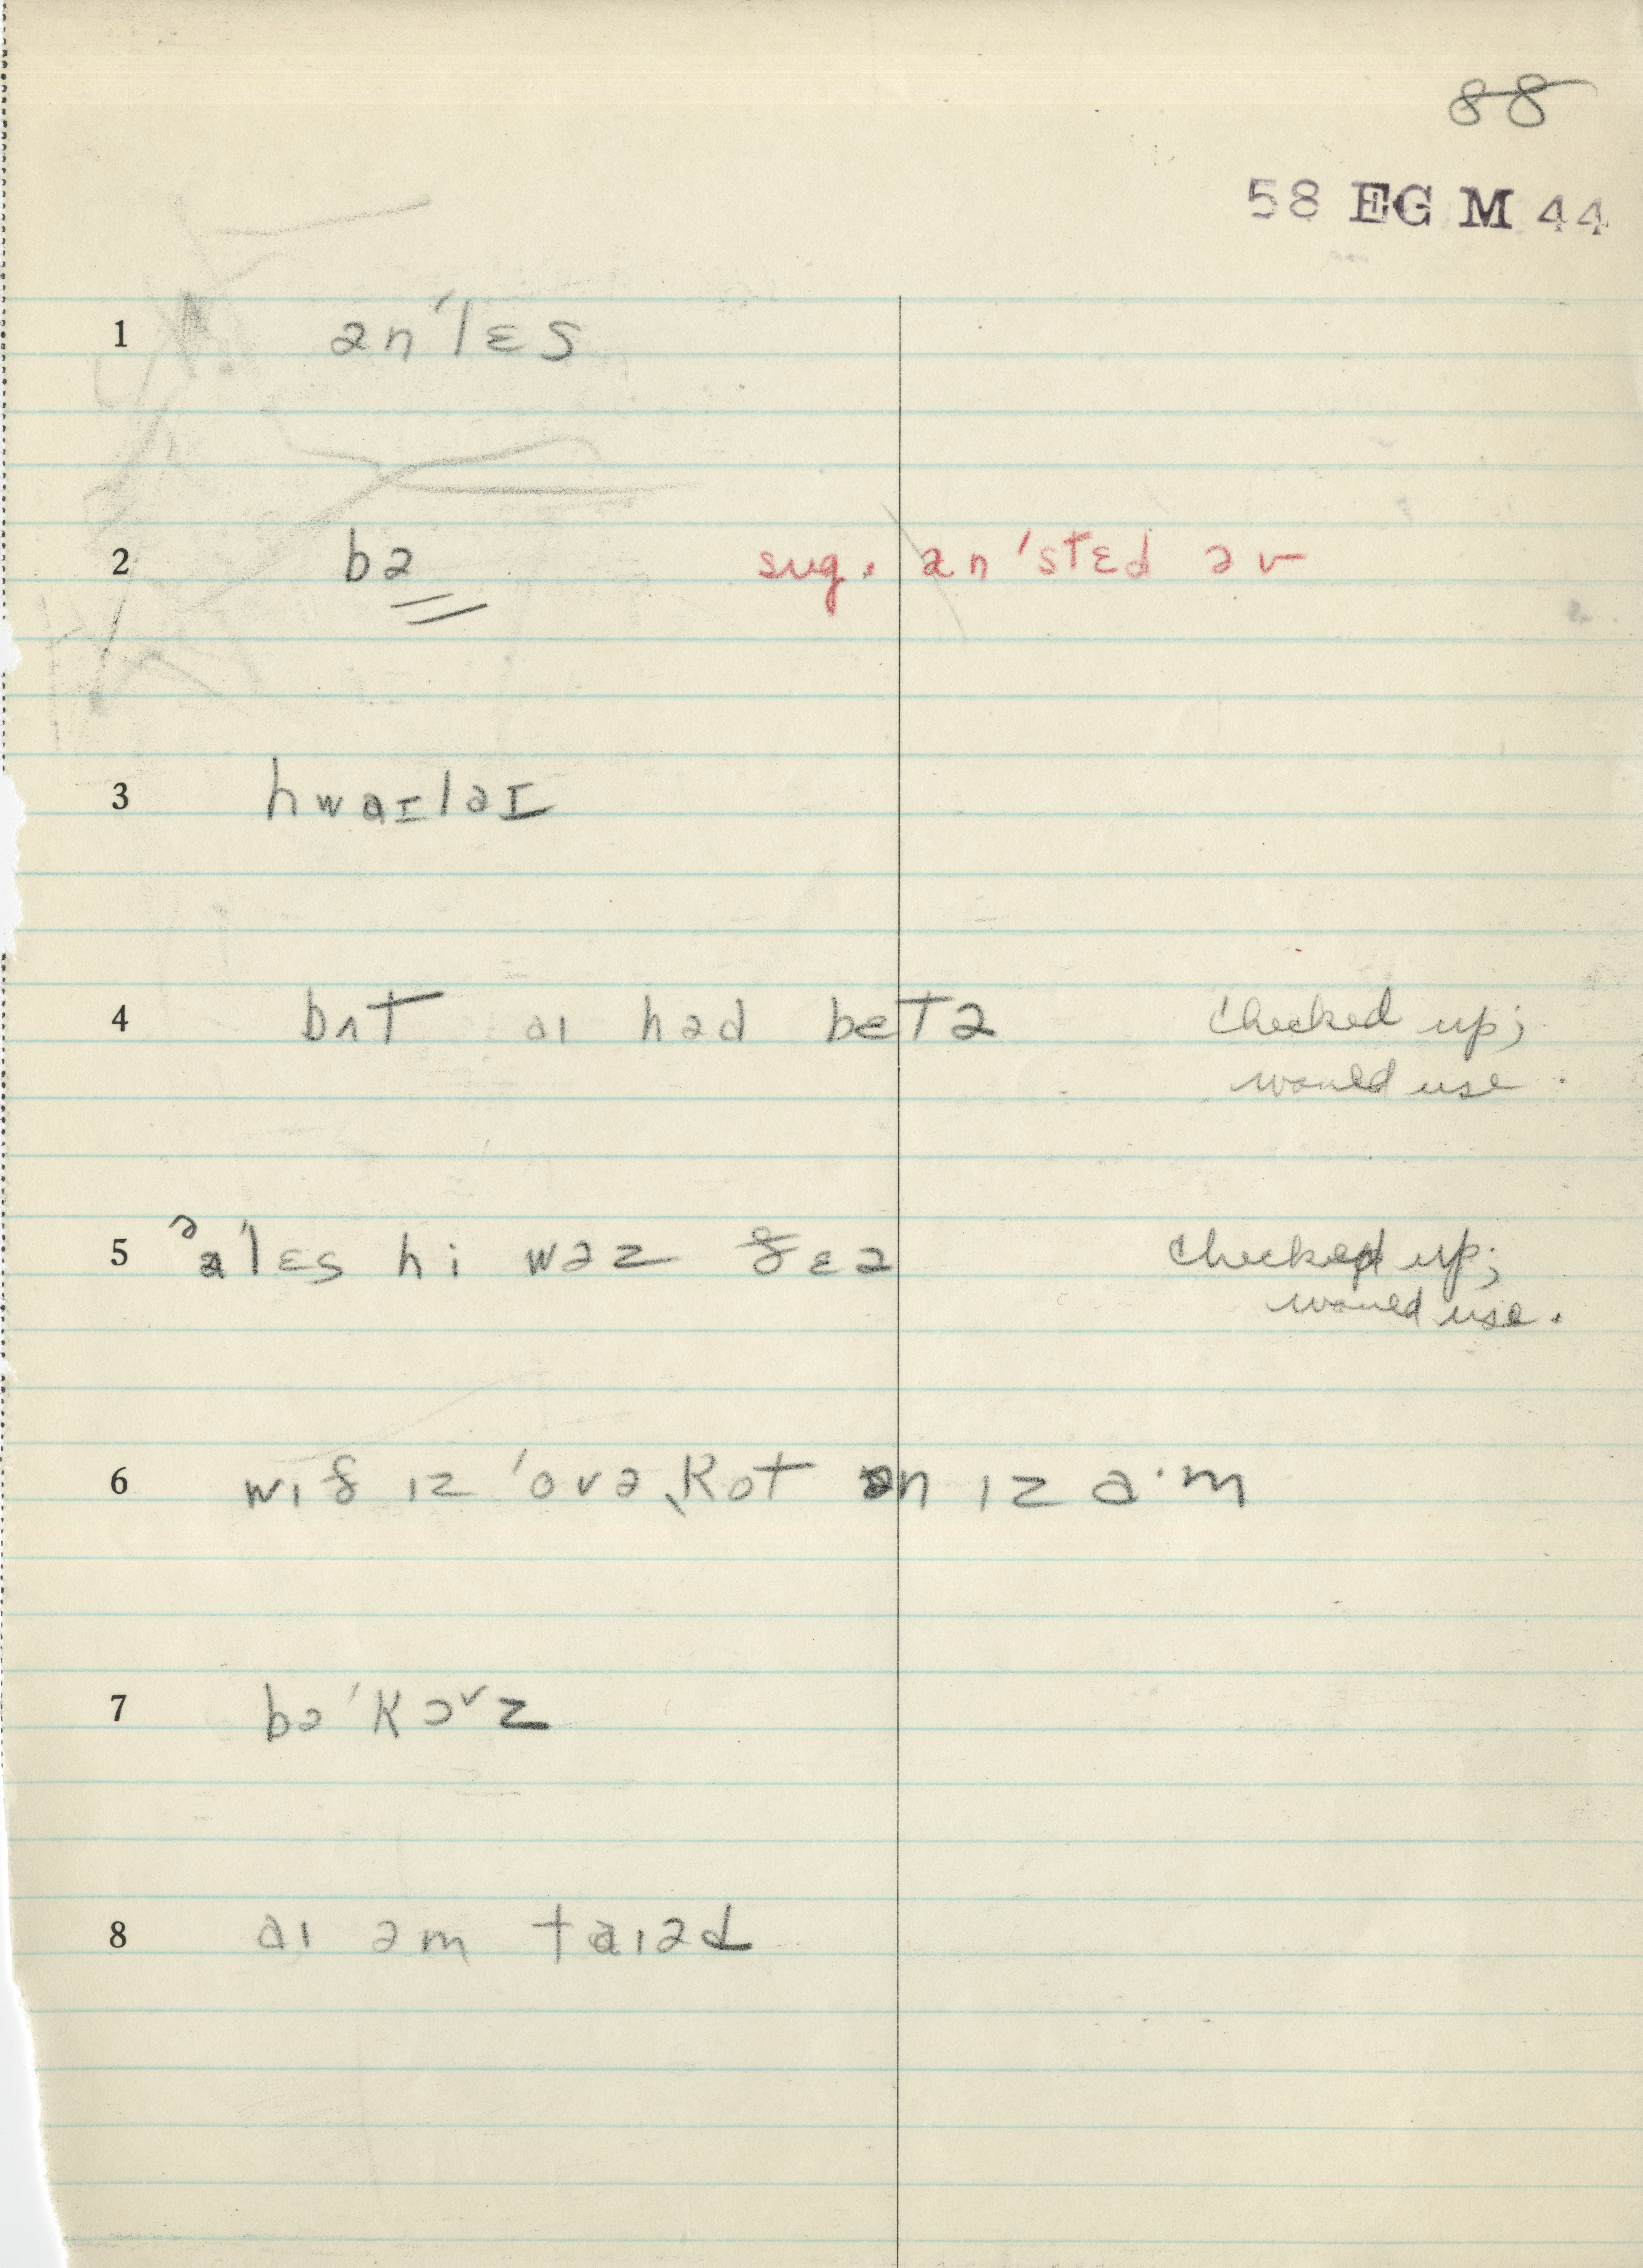 88
58 EG M 44
1 ən'lɛs
2 bə sug. ən'stɛd əv
3 hwaɪləɪ
4 bʌt aɪ had betə checked up;
would use.
5 ə'lɛs hi wəz ðɛə checked up;
would use.
6 wɪð ɪz 'ovə,kot ən ɪz a·m
7 bə'kɔ˅z
8 aɪ əm taɪəd